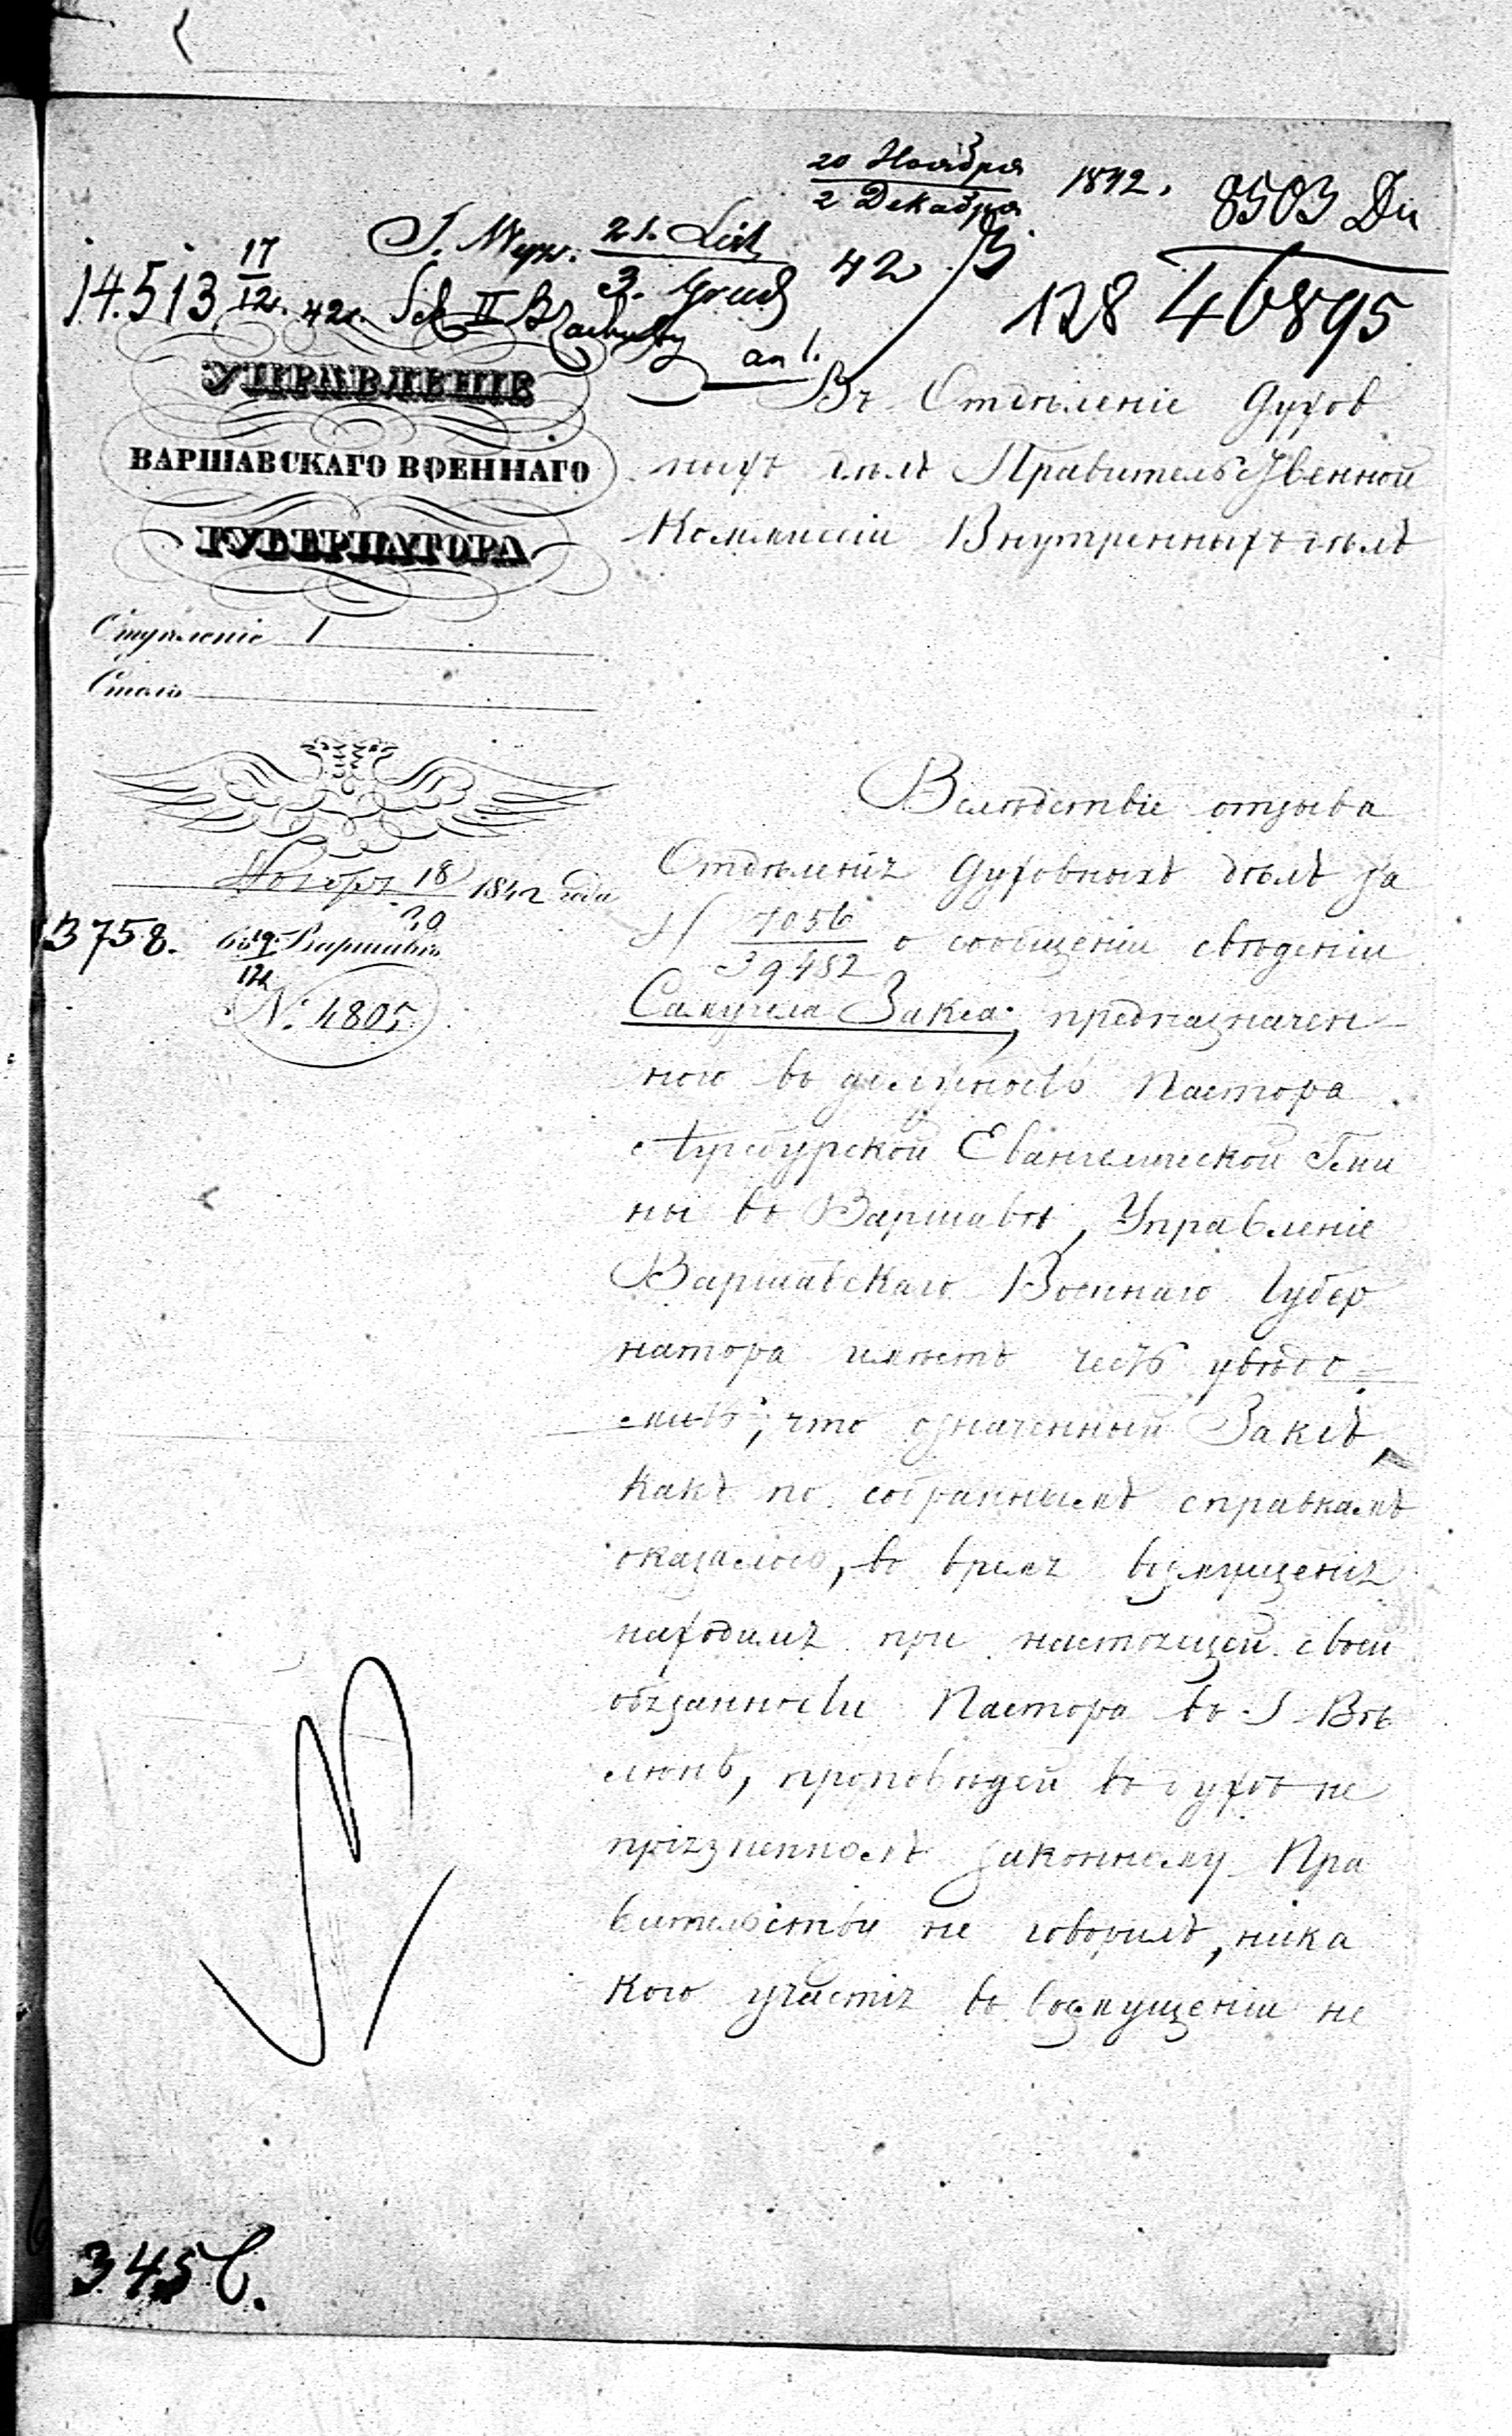 20 Ноября
2 Декабря
1842.
8503 Du
128 46895
21. List
3. Grud
42
14.513 17/12. 42r. Sek II
an 1.
УПРАВЛЕНІЕ
ВАРШАВСКАГО ВОЕННАГО
ГУБЕРНАТОРА
Отдѣленіе 1
Столъ
Ноября 18/30 1842 года
13758.
въ Варшавѣ
№. 4805
Въ Отдѣленіе Духов
ныхъ дѣлъ Правительственной
Коммиссіи Внутренныхъ дѣлъ
Вслѣдствіе отзыва
Отдѣленія Духовныхъ дѣлъ за
N 7056/39482 о сообщеніи свѣденіи
Самуила Закса, предназначен-
ного въ должность Пастора
Евангелической Гми
ны въ Варшавѣ, Управленіе
Варшавскаго Военнаго Губер
натора имѣетъ честь увѣдо=
мить, что означенный Заксъ,
какъ по собраннымъ справкамъ
оказалось, во время возмущенія
находилъ при настоящей своей
обязанности Пастора въ г. Вѣ
люнѣ, проповѣдей въ духѣ не
пріязненномъ законному Пра
вительству не говорилъ, ника
кого участія въ возмущеніи не
3456.